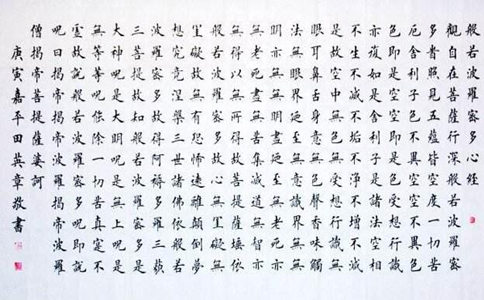 般若波羅密多心經
觀自在菩薩行深般若波羅密
多時照見五蘊皆空度一切苦
厄舍利子色不異空空不異色
色即是空空即是色受想行識
亦復如是舍利子是諸法空相
不生不滅不垢不淨不增不減
是故空中無色無受想行識無
眼耳鼻舌身意無色聲香味觸
法無眼界乃至無意識界無無
明亦無無明盡乃至無老死亦
無老死盡無苦集滅道無智亦
無得以無所得故菩提薩埵依
般若波羅密多故心無罣礙無
罣礙故無有恐怖遠離顛倒夢
想究竟涅槃三世諸佛依般若
波羅密多故得阿耨多羅三藐
三菩提故知般若波羅密多是
大神呪是大明呪是無上呪是
無等等呪能除一切苦真實不
虛故說般若波羅密多呪即說
呪曰揭帝揭帝波羅揭帝波羅
僧揭帝菩提薩婆訶
庚寅嘉平田英章敬書